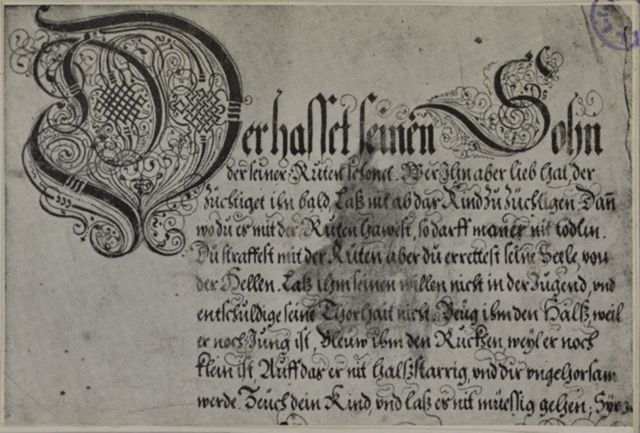 Der hasset seinen Sohn
der seiner Ruten schonet. Wer Ihn aber lieb hat der
züchtiget ihn bald. Laß nit ab das Kind zu züchtigen. Dan̄
wo du es mit der Ruten hawest, so darff maners nit tödten.
Du straffest mit der Ruten aber du errettest seine Seele, von
der Hellen. Laß ihm seinen willen nicht in der Jugend, vnd
entschuldige seine Thorhait nicht. Beüg ihm den Halß, weil
er noch Jung ist, Bleuw ihm den Ruckhen weyl er noch
klein ist Auff das er nit halßstarrig, vnd dir vngehorsam
werde. Zeuch dein Kind, vnd laß es nit müessig gehen;